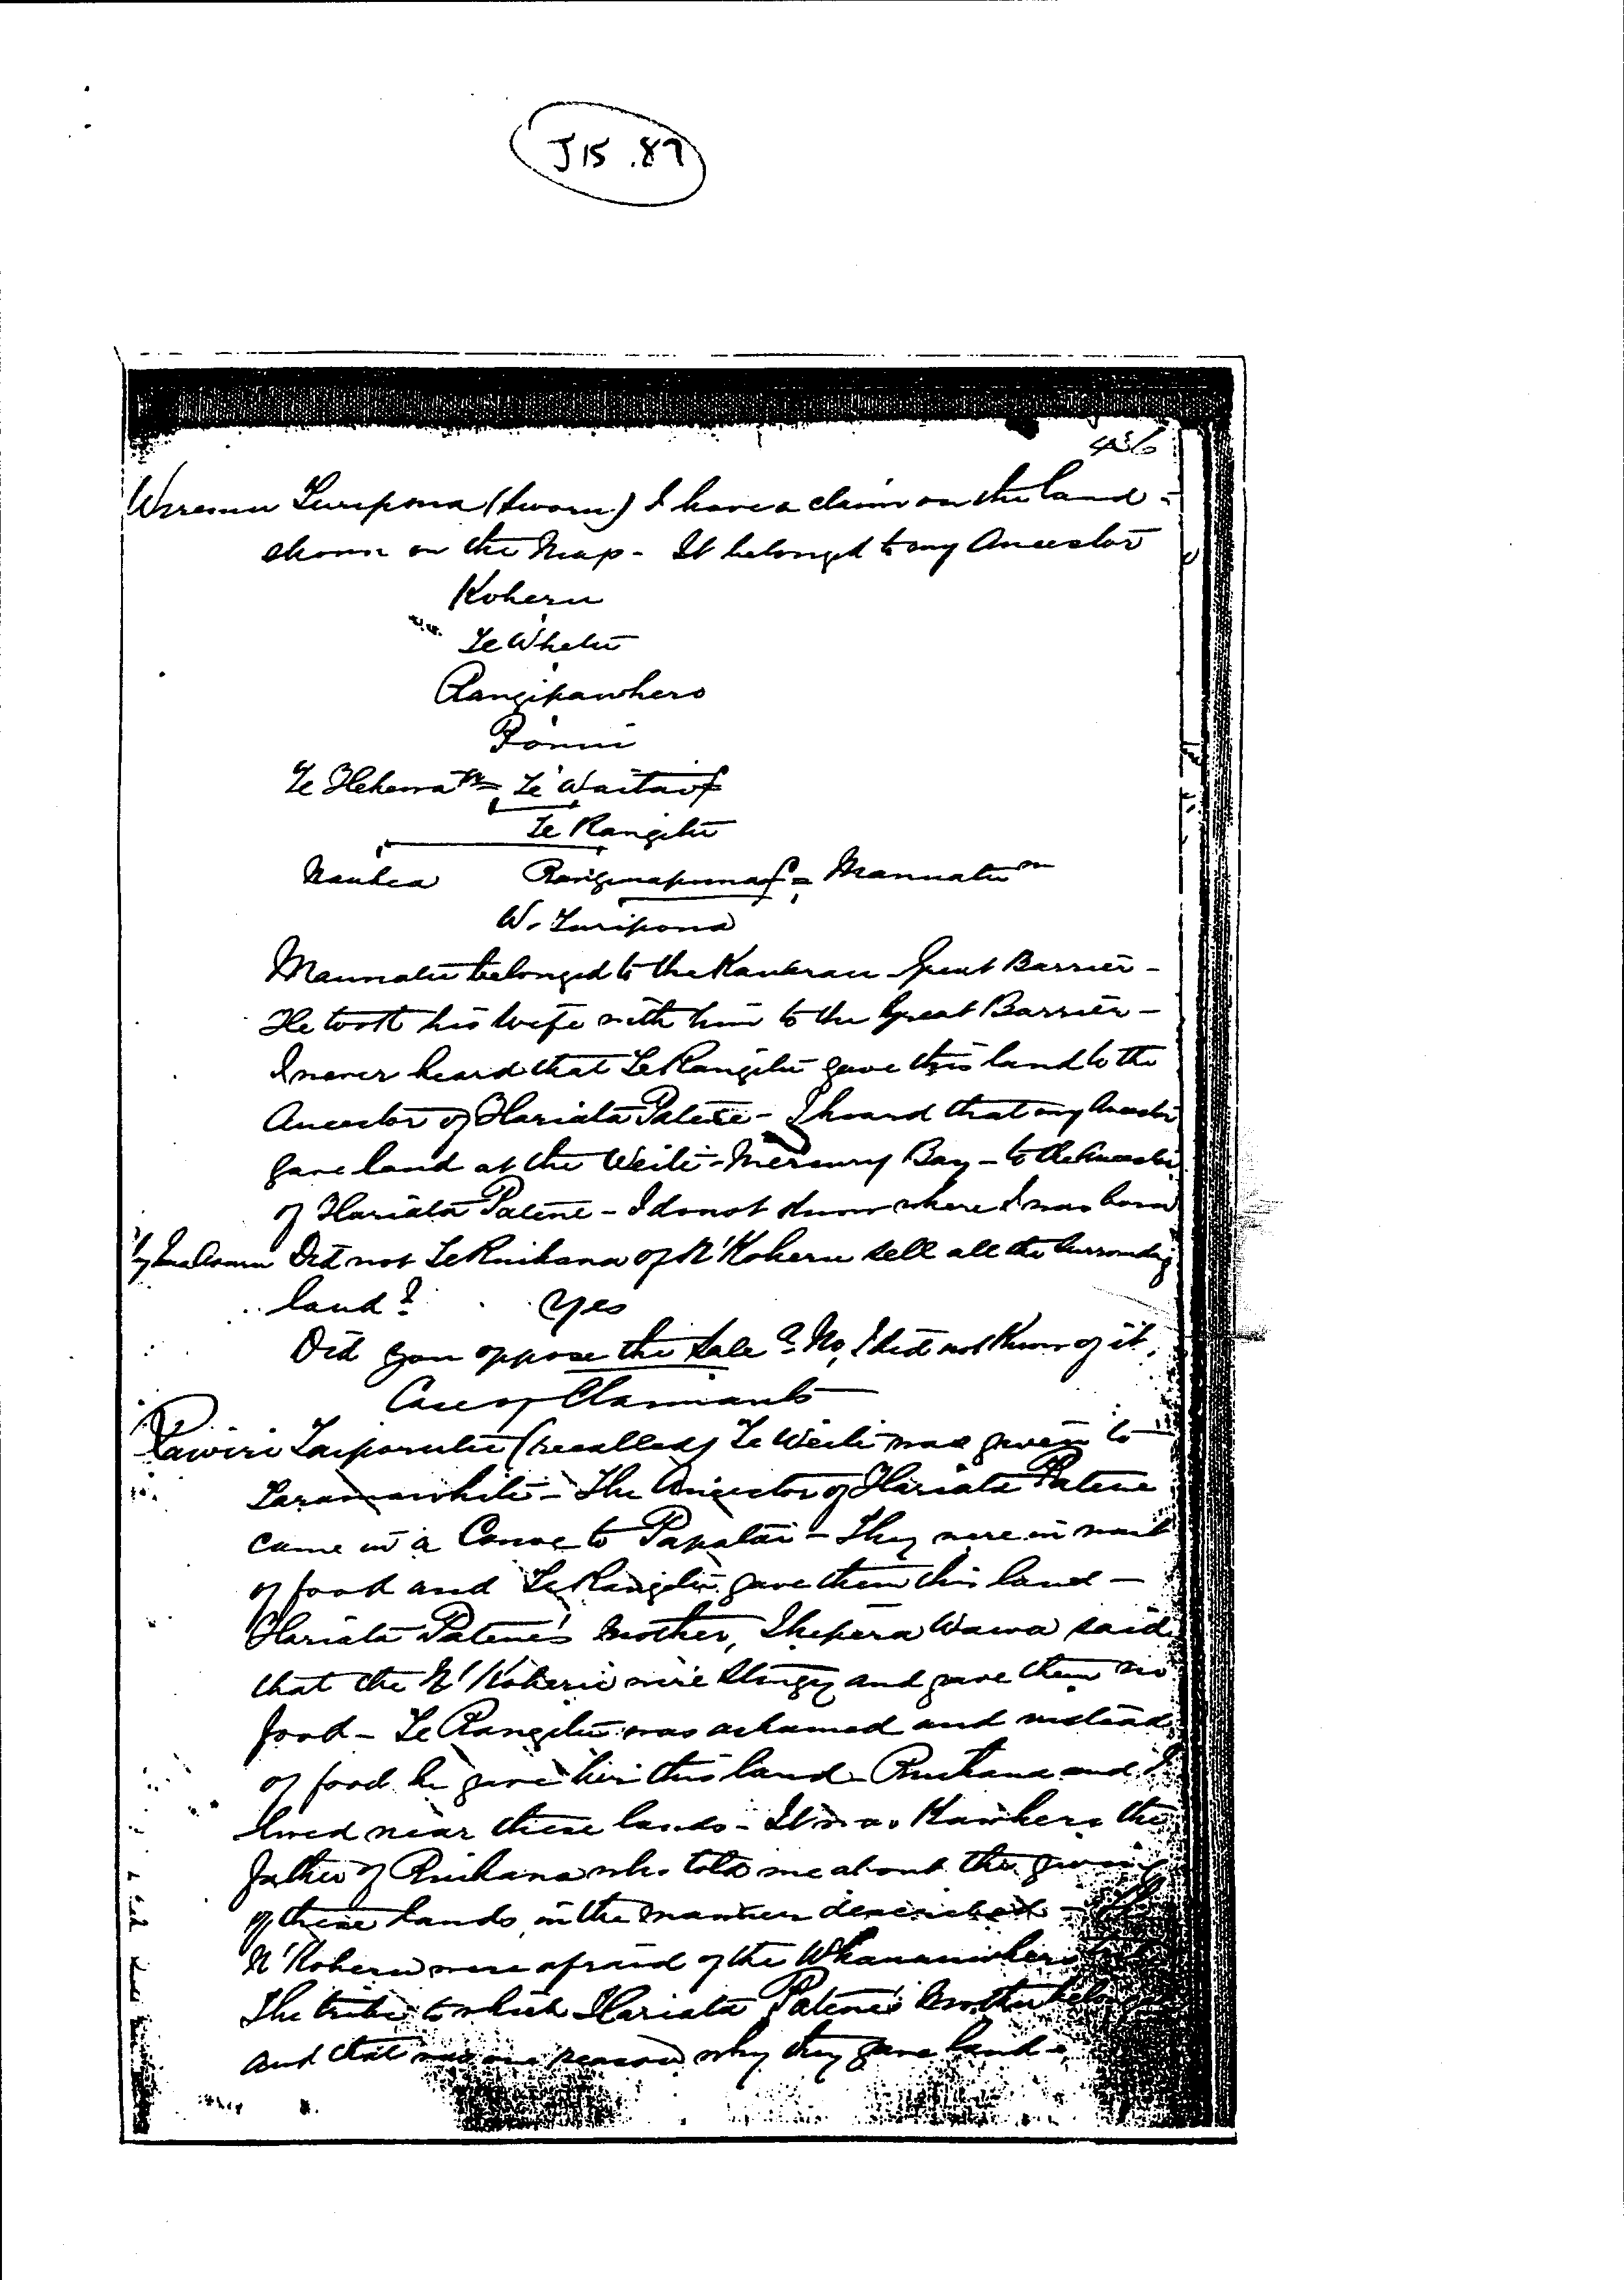 J15.87
Wiremu Turipona (sworn) I have a claim on the land -
shown on the Map - It belonged to my Ancestor
Koheru
Te Whetu
Rangipawhero
Te Hekewa m = Te Waitau f
Te Rangitu
Nauhea Ranginapuna f = Maunatu m
W. Turipona
Maunatu belonged to the Great Barrier -
He took his wife with him to the Great Barrier -
I never heard that Te Rangitu gave this land to the
Ancestor of Hariata Patene - I heard that my Ancestor
gave land at the Weiti - Mercury Bay - to the Ancestor
of Hariata Patene - I do not know where I was born
Did not Te Ruihana of N'Koheru sell all the surrounding
land? Yes
Did you oppose the sale? No, I did not know of it.
Case of Claimants
Rawiri Taiporutu (recalled) Te Weiti was given to
Taramawhiti - The Ancestor of Hariata Patene
came in a Canoe to Papatai - They were in want
of food and Te Rangitu gave them this land -
Hariata Patene's Mother, Ihipera Wawa said
that the N'Koheru were stingy and gave them no
food - Te Rangitu was ashamed and instead
of food he gave her this land - Ruihana and I
lived near these lands - It was Kawhero the
father of Ruihana who told me about the giving
of these lands in the manner described -
N'Koheru were afraid of the Whanauwhero
The tribe to which Hariata Patene's Mother belonged
and that was one reason why they gave land -